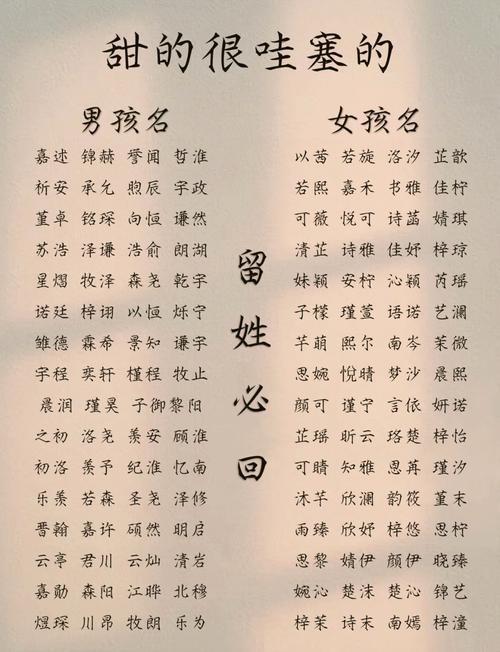 甜的很哇塞的
男孩名
嘉述 锦赫 誉闻 哲淮
祈安 承允 煦辰 宇政
堇卓 铭琛 向恒 谦然
苏浩 泽谦 浩俞 朗湖
星熠 牧泽 森尧 乾宇
诺廷 梓诩 以恒 烁宁
雏德 霖希 景知 谦宇
宇程 奕轩 槿程 牧止
晨润 瑾昊 子御黎阳
之初 洛尧 羡安 顾淮
初洛 羡予 纪淮 忆南
乐羡 若森 圣尧 泽修
晋翰 嘉许 硕然 明启
云亭 君川 云灿 清岩
嘉勋 森阳 江晔 北穆
煜琛 川昂 牧朗 乐为
留姓必回
女孩名
以茜 若旋 洛汐 芷歆
若熙 嘉禾 书雅 佳柠
可薇 悦可 诗菡 婧琪
清芷 诗雅 佳妤 梓琼
妹颖 安柠 沁颖 芮瑶
子檬 瑾萱 语诺 艺澜
芊萌 熙尔 南岑 茉微
思婉 悦晴 梦沙 晨熙
颜可 谨宁 言依 妍诺
芷瑶 昕云 珞楚 梓怡
可晴 知雅 思苒 瑾汐
沐芊 欣澜 韵筱 堇末
雨臻 欣妤 梓悠 思柠
思黎 婧伊 颜伊 晓臻
婉沁 楚沫 楚沁 锦艺
梓茉 诗末 南嫣 梓潼